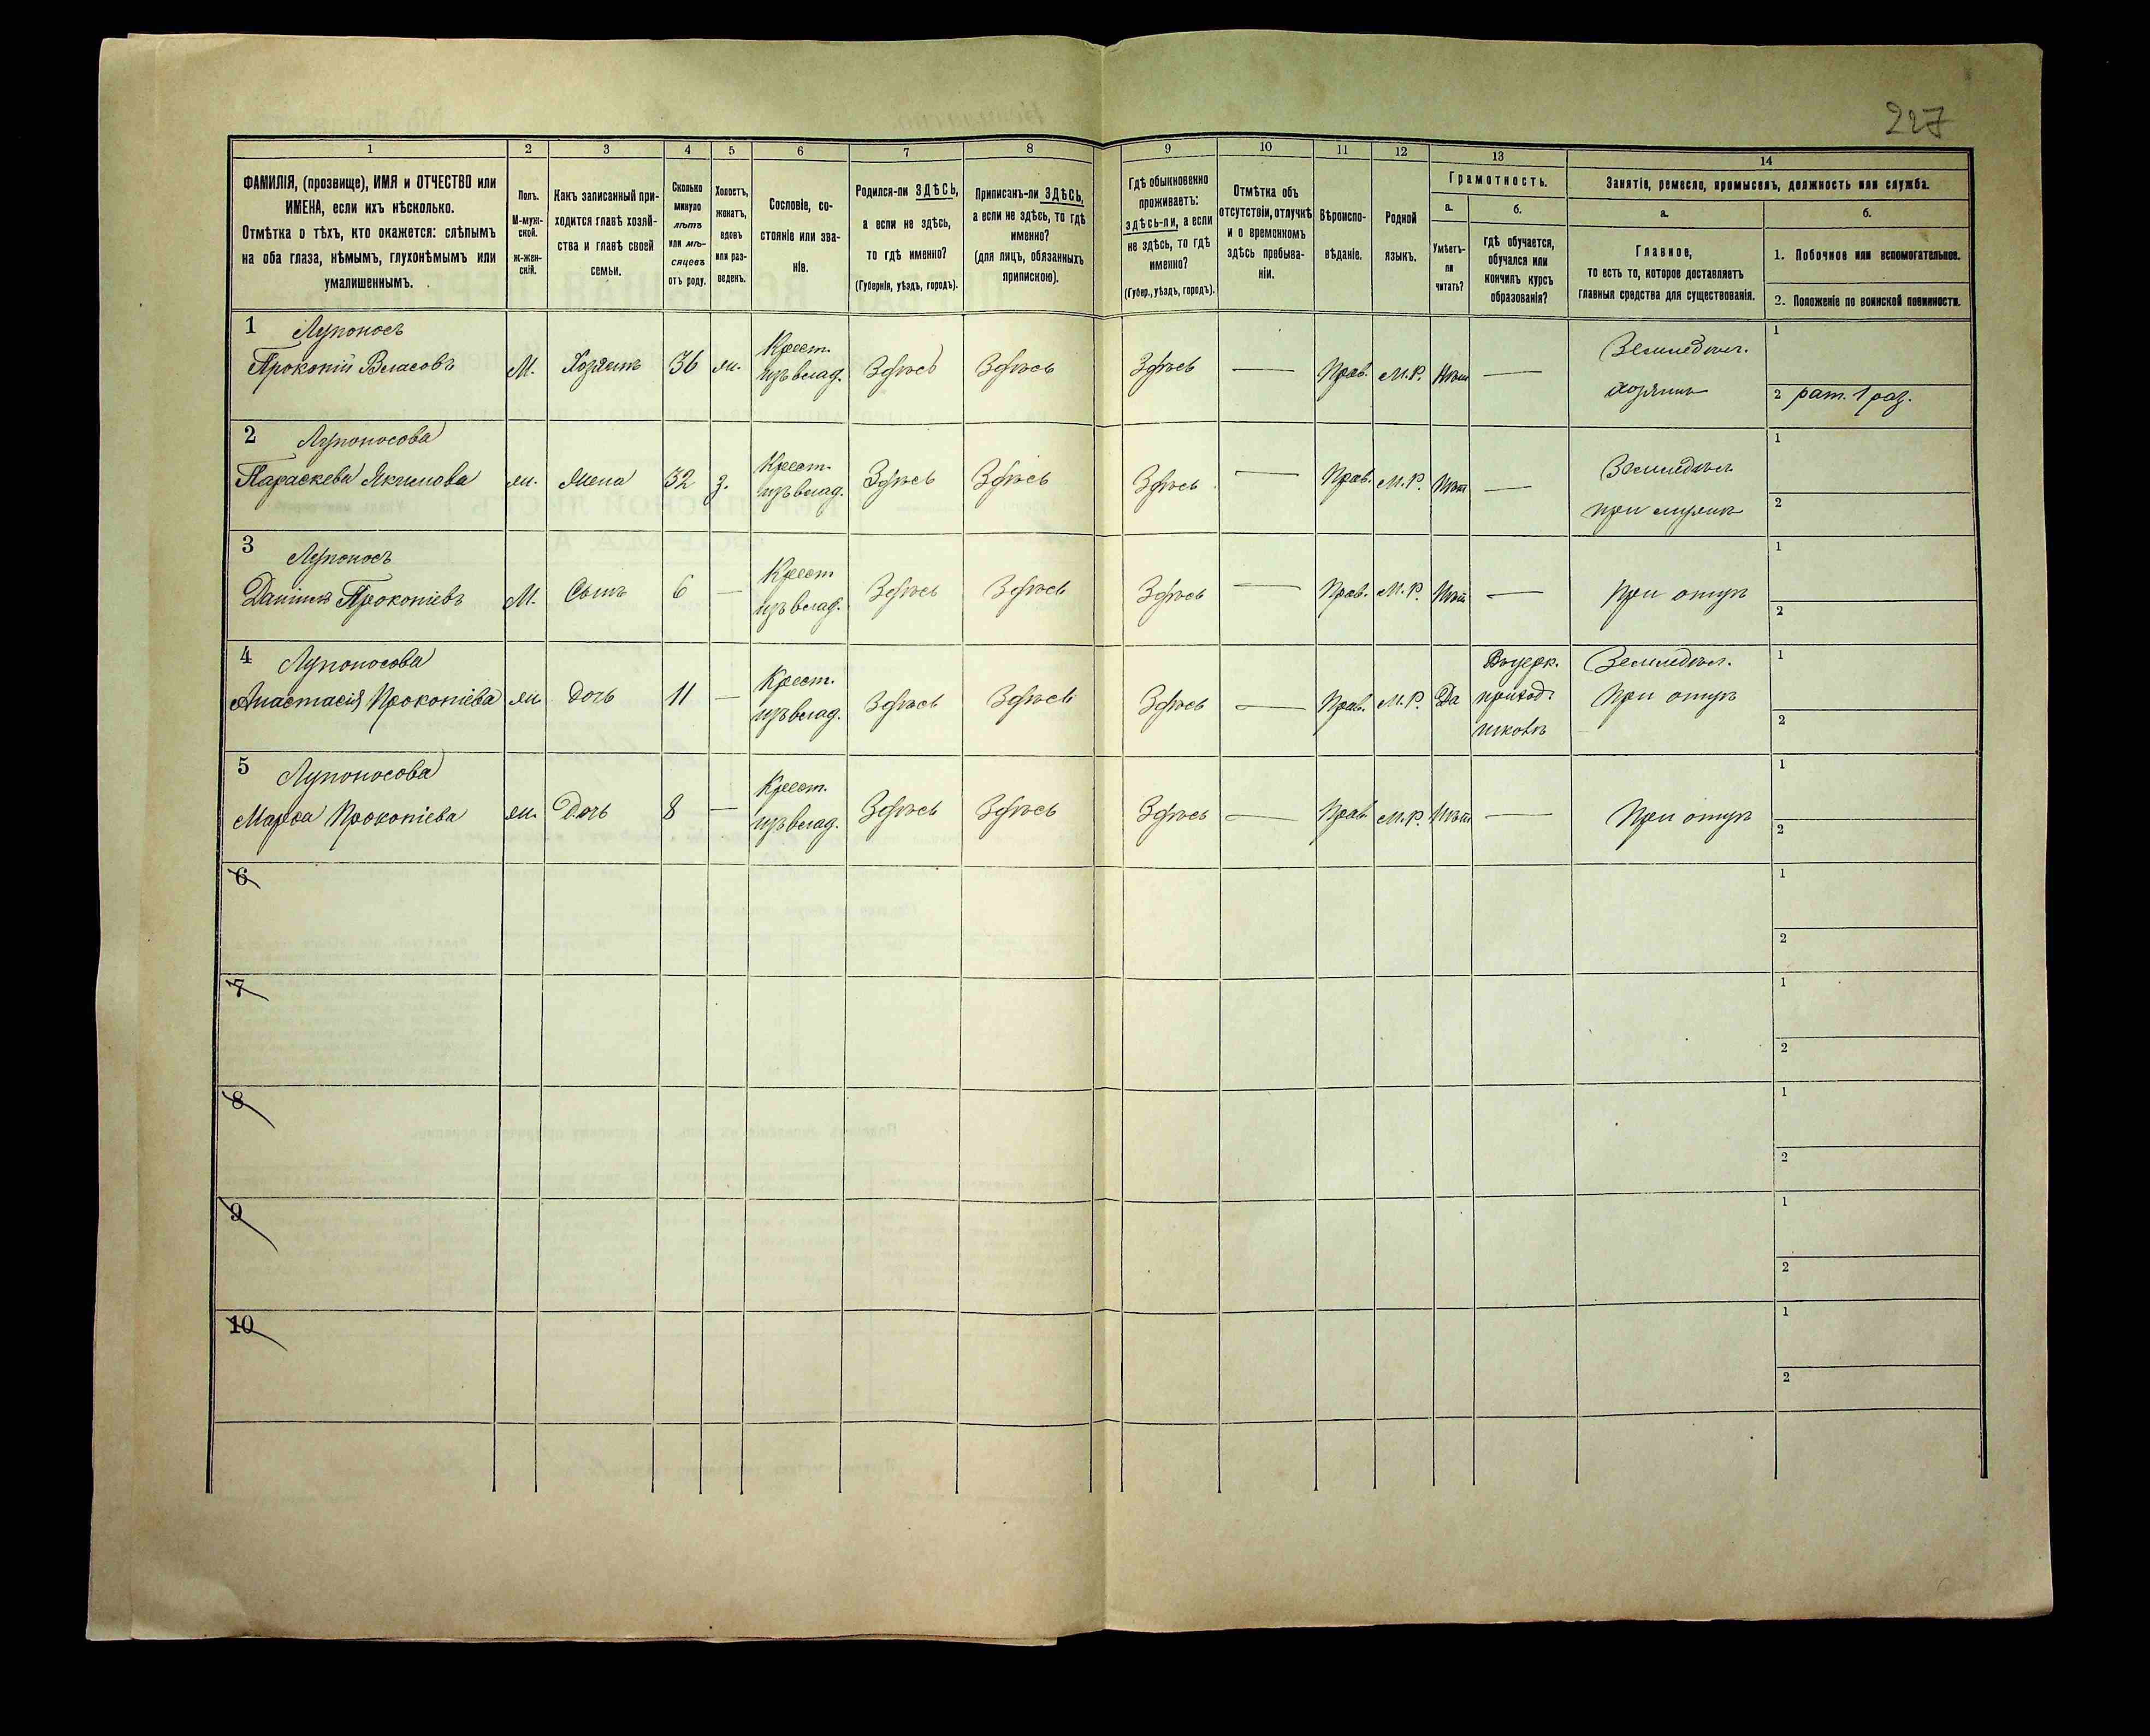 227
1 2 3 4 5 6 7 8 9 10 11 12 13 14
ФАМИЛІЯ, (прозвище), ИМЯ и ОТЧЕСТВО или
ИМЕНА, если ихъ нѣсколько.
Отмѣтка о тѣхъ, кто окажется: слѣпымъ
на оба глаза, нѣмымъ, глухонѣмымъ или
умалишеннымъ.
Полъ.
М-муж-
ской.
ж-жен-
скій.
Какъ записанный при-
ходится главѣ хозяй-
ства и главѣ своей
семьи.
Сколько
минуло
лѣтъ
или мѣ-
сяцевъ
отъ роду.
Холостъ,
женатъ,
вдовъ
или раз-
веденъ.
Сословіе, со-
стояніе или зва-
ніе.
Родился-ли ЗДѢСЬ,
а если не здѣсь,
то гдѣ именно?
(Губернія, уѣздъ, городъ).
Приписанъ-ли ЗДѢСЬ,
а если не здѣсь, то гдѣ
именно?
(для лицъ, обязанныхъ
припискою).
Гдѣ обыкновенно
проживаетъ:
здѣсь-ли, а если
не здѣсь, то гдѣ
именно?
(Губер., уѣздъ, городъ).
Отмѣтка объ
отсутствіи, отлучкѣ
и о временномъ
здѣсь пребыва-
ніи.
Вѣроиспо-
вѣданіе.
Родной
языкъ.
Грамотность.
а.
Умѣетъ-
ли
читать?
б.
гдѣ обучается,
обучался или
кончилъ курсъ
образованія?
Занятіе, ремесло, промыселъ, должность или служба.
а.
Главное,
то есть то, которое доставляетъ
главныя средства для существованія.
б.
1. Побочное или вспомогательное.
2. Положеніе по воинской повинности.
1 Лупоносъ
Прокопій Власовъ М. Хозяинъ 36 ж. Крест. изъ влад. Здѣсь Здѣсь Здѣсь — Прав. М.Р. Нѣт — Земледѣл. хозяинъ
1
2 рат. 1 раз.
2 Лупоносова
Параскева Якимова ж. Жена 32 з. Крест. изъ влад. Здѣсь Здѣсь Здѣсь — Прав. М.Р. Нѣт — Земледѣл. при мужѣ
1
2
3 Лупоносъ
Даніилъ Прокопіевъ М. Сынъ 6 — Крест изъ влад. Здѣсь Здѣсь Здѣсь — Прав. М.Р. Нѣт — При отцѣ
1
2
4 Лупоносова
Анастасія Прокопіева ж. Дочь 11 — Крест. изъ влад. Здѣсь Здѣсь Здѣсь — Прав. М.Р. Да Въ церк. приход. школѣ Земледѣл. При отцѣ
1
2
5 Лупоносова
Марѳа Прокопіева ж. Дочь 8 — Крест. изъ влад. Здѣсь Здѣсь Здѣсь — Прав. М.Р. Нѣт — При отцѣ
1
2
6
1
2
7
1
2
8
1
2
9
1
2
10
1
2